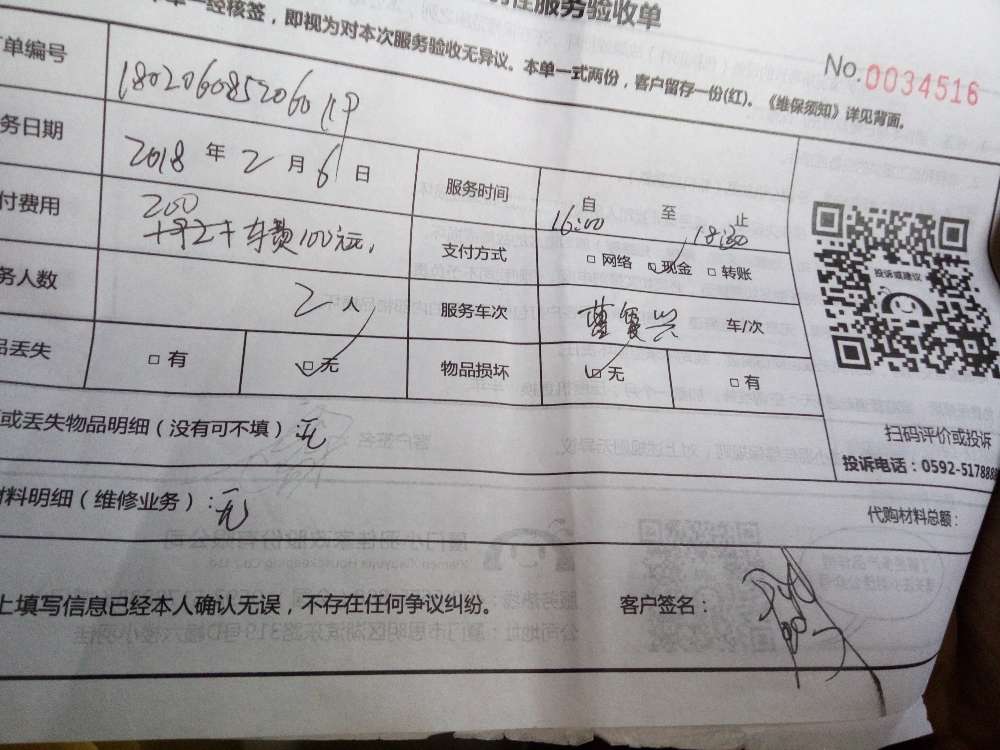 性服务验收单
单一经核签，即视为对本次服务验收无异议。本单一式两份，客户留存一份(红)。《维保须知》详见背面。
No.0034516
单编号 180206085206011P
务日期 2018 年 2 月 6 日 服务时间 自 16:00 至 18:30 止
付费用 200 车费100元, 支付方式 □网络 ☑现金 □转账
务人数 2人 服务车次 车/次
品丢失 □有 ☑无 物品损坏 ☑无 □有
投诉或建议
扫码评价或投诉
投诉电话：0592-5178888
或丢失物品明细（没有可不填）:无
材料明细（维修业务）:无
代购材料总额:
上填写信息已经本人确认无误，不存在任何争议纠纷。 客户签名：